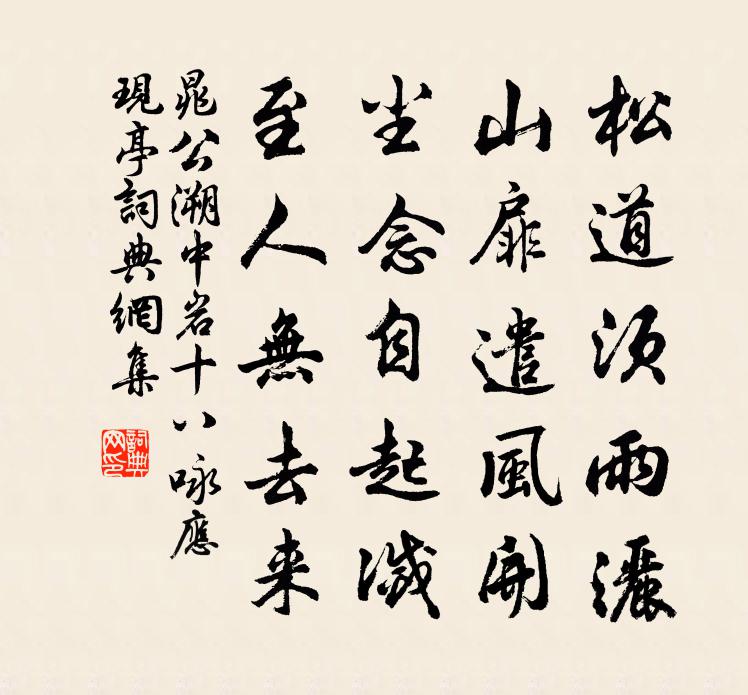 松道須雨灑
山扉遣風開
坐念自起滅
至人無去来
晁公溯中岩十八咏應
現亭詞典網集
詞典
网印